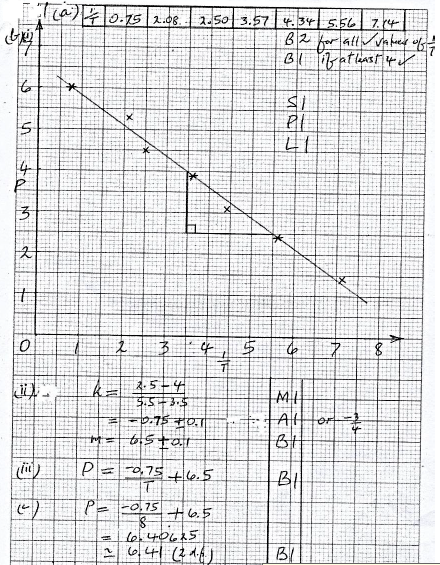 1(a) 1/T 0.75 2.08 2.50 3.57 4.34 5.56 7.14
(b)(i)
B2 for all ✓ values of 1/T
B1 if at least 4 ✓
S1
P1
L1
7
6
5
4
P
3
2
1
0 1 2 3 4 1/T 5 6 7 8
(ii) k = (2.5 - 4)/(5.5 - 3.5) M1
= -0.75 ± 0.1 A1 or -3/4
m = 6.5 ± 0.1 B1
(iii) P = -0.75/T + 6.5 B1
(c) P = -0.75/8 + 6.5
= 6.40625
≃ 6.41 (2 d.p.) B1